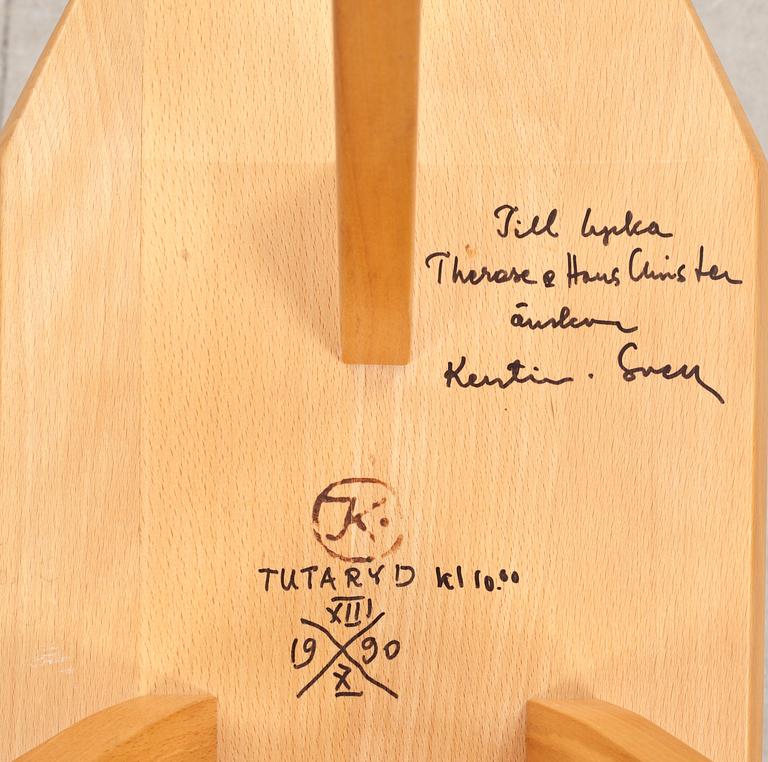 Till lycka
Therese & Hans Christer
önskar
Kerstin. Sven
JK.
TUTARYD kl 10.00
XIII
19 90
X